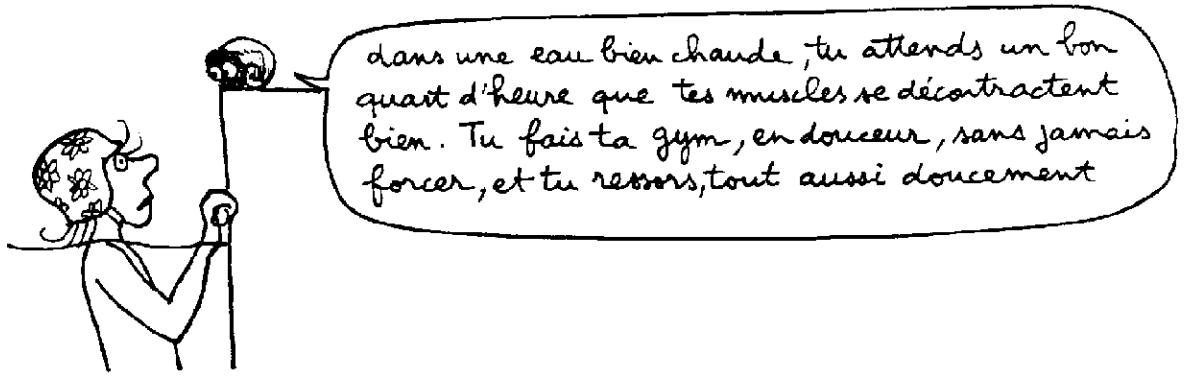 dans une eau bien chaude, tu attends un bon
quart d'heure que tes muscles se décontractent
bien. Tu fais ta gym, en douceur, sans jamais
forcer, et tu ressors, tout aussi doucement